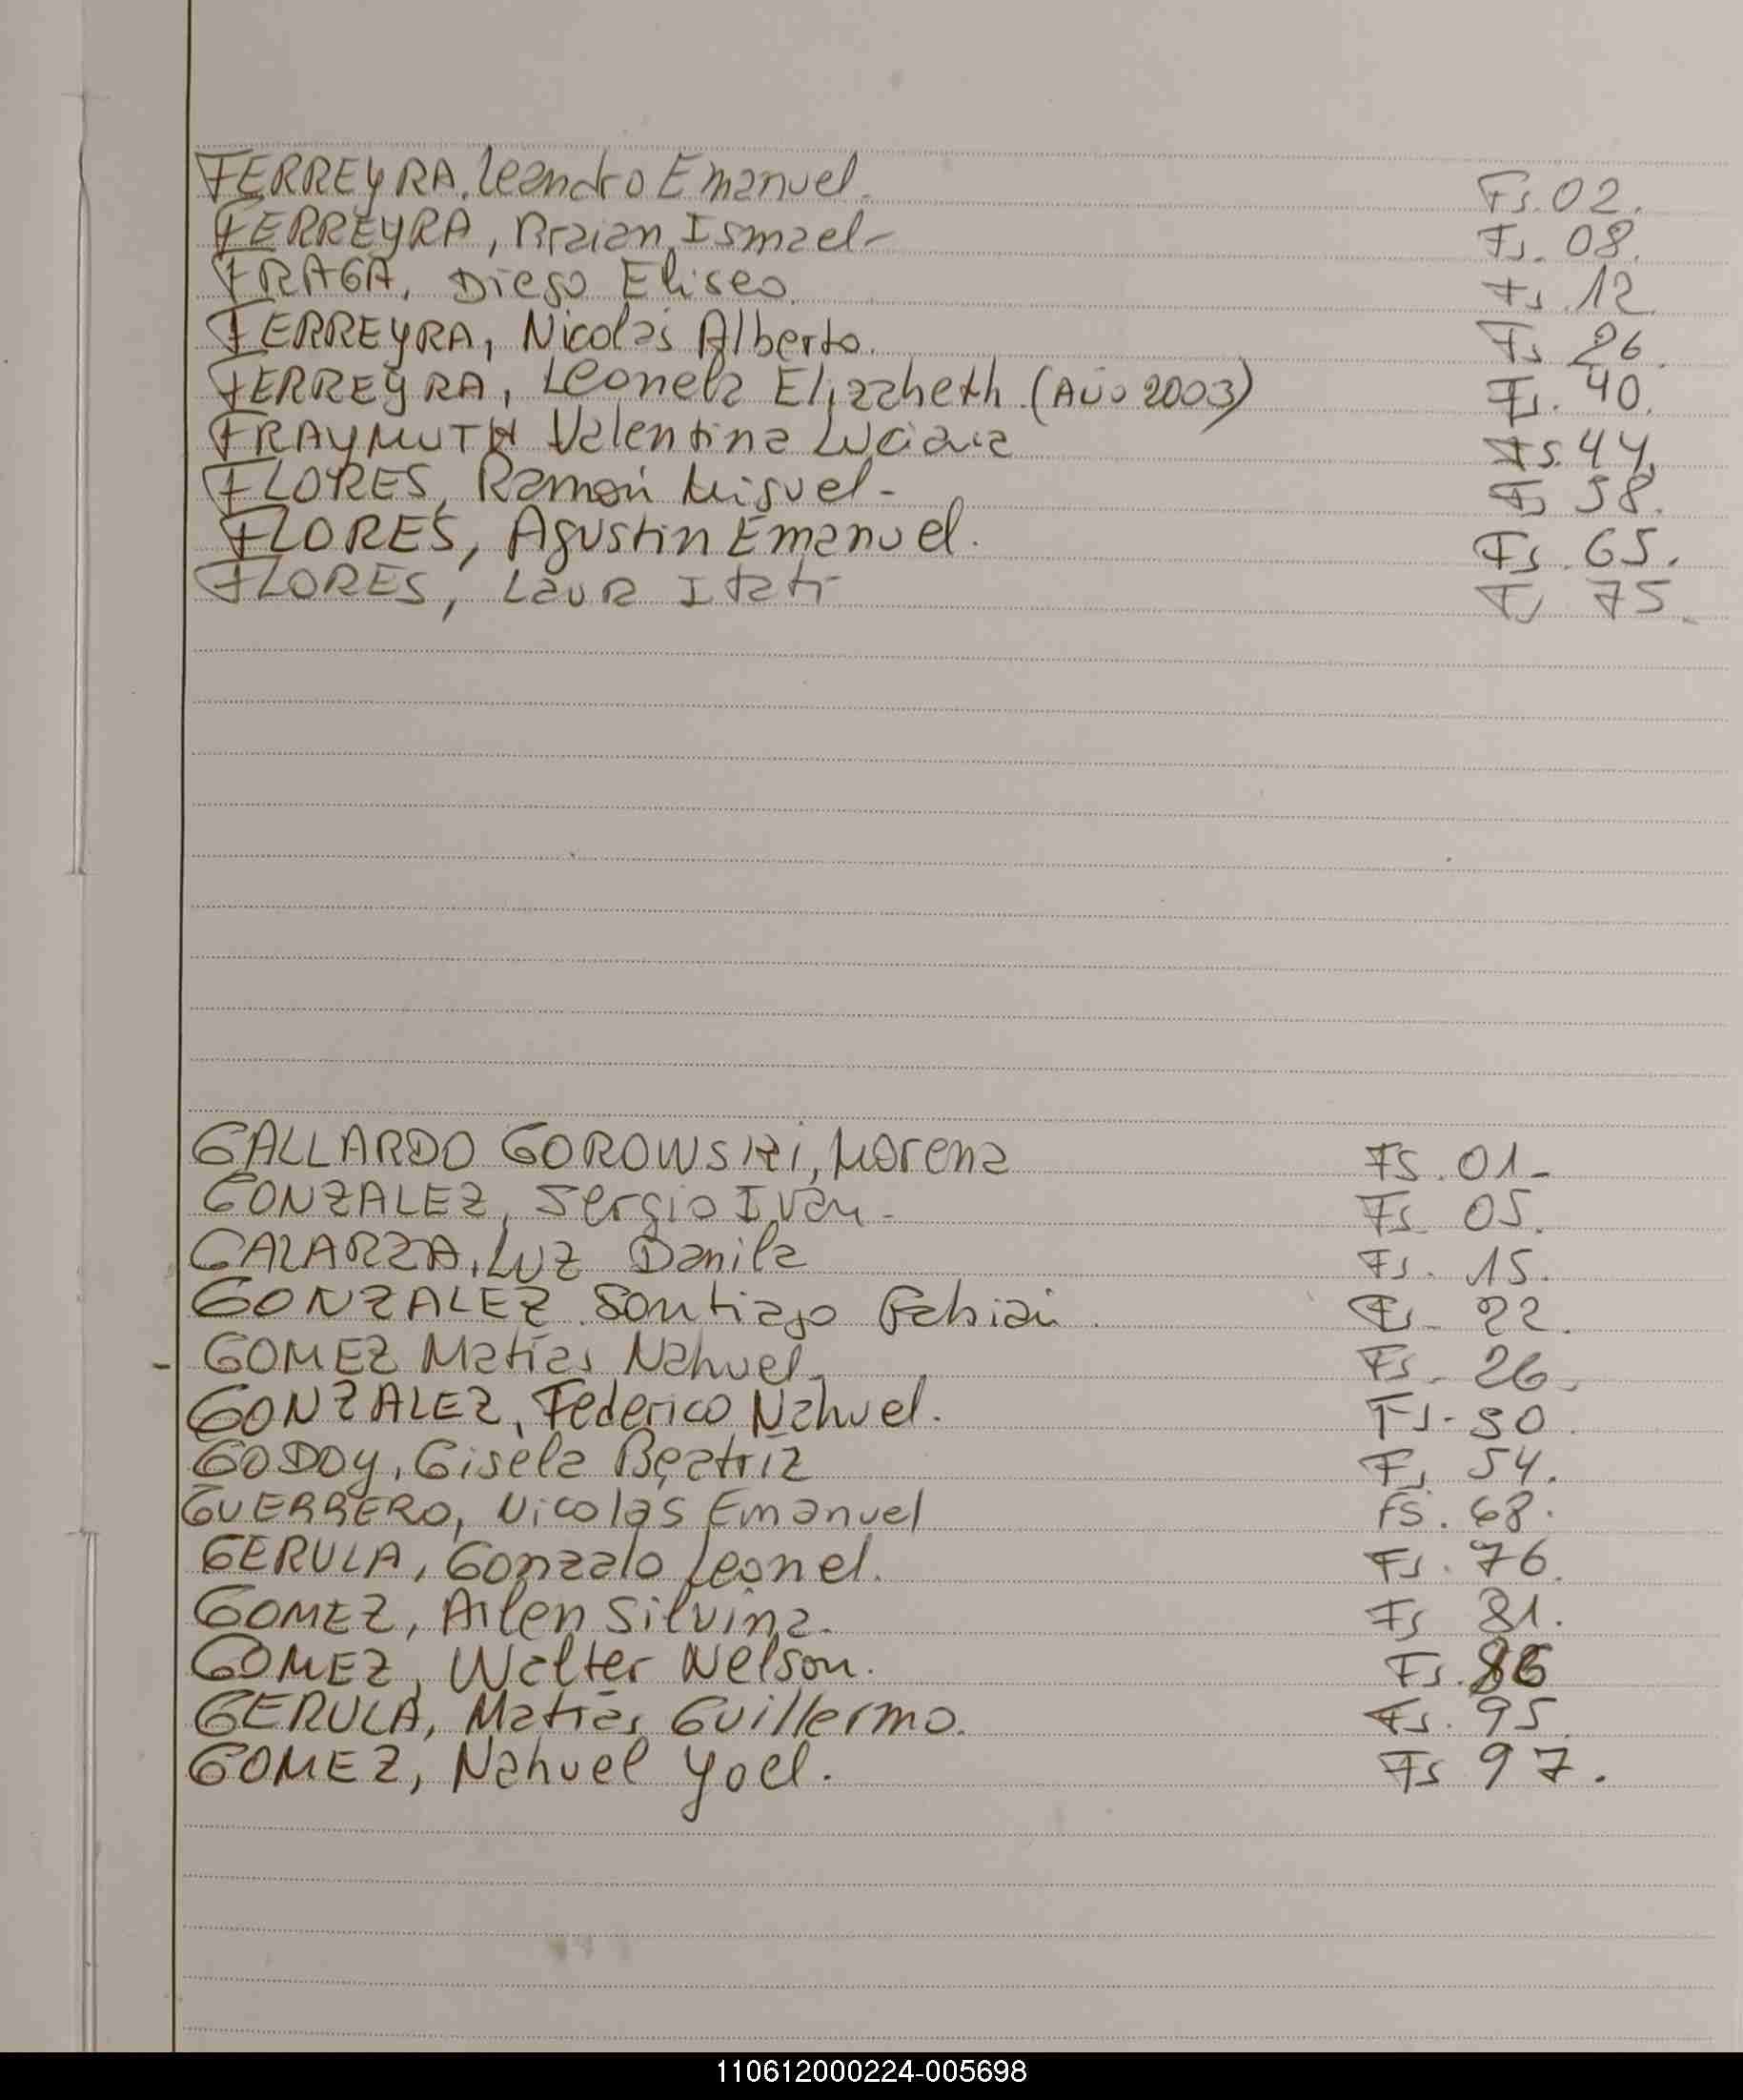 FERREYRA, Leandro Emanuel. Fs. 02.
FERREYRA, Braian Ismael- Fs. 08.
FRAGA, Diego Eliseo. Fs. 12.
FERREYRA, Nicolás Alberto. Fs 26.
FERREYRA, Leonela Elizabeth (Año 2003) Fs. 40.
FRAYMUTH Valentina Luciana Fs. 44.
FLORES, Ramón Miguel- Fs 58.
FLORES, Agustin Emanuel. Fs. 65.
FLORES, Laura Itati Fs 75.
GALLARDO GOROWSKI, Morena Fs. 01-
GONZALEZ, Sergio Iván- Fs 05.
GALARZA, Luz Danila Fs. 15.
GONZALEZ Santiago Fabián. Fs- 22.
- GOMEZ Matías Nahuel. Fs- 26.
GONZALEZ, Federico Nahuel. Fs- 30.
GODOY, Gisela Beatriz Fs 54.
GUERRERO, Nicolas Emanuel Fs. 68.
GERULA, Gonzalo Leonel. Fs. 76.
GOMEZ, Ailen Silvina. Fs 81.
GOMEZ, Walter Nelson. Fs. 86
GERULA, Matías Guillermo. Fs. 95.
GOMEZ, Nahuel Yoel. Fs 97.
110612000224-005698